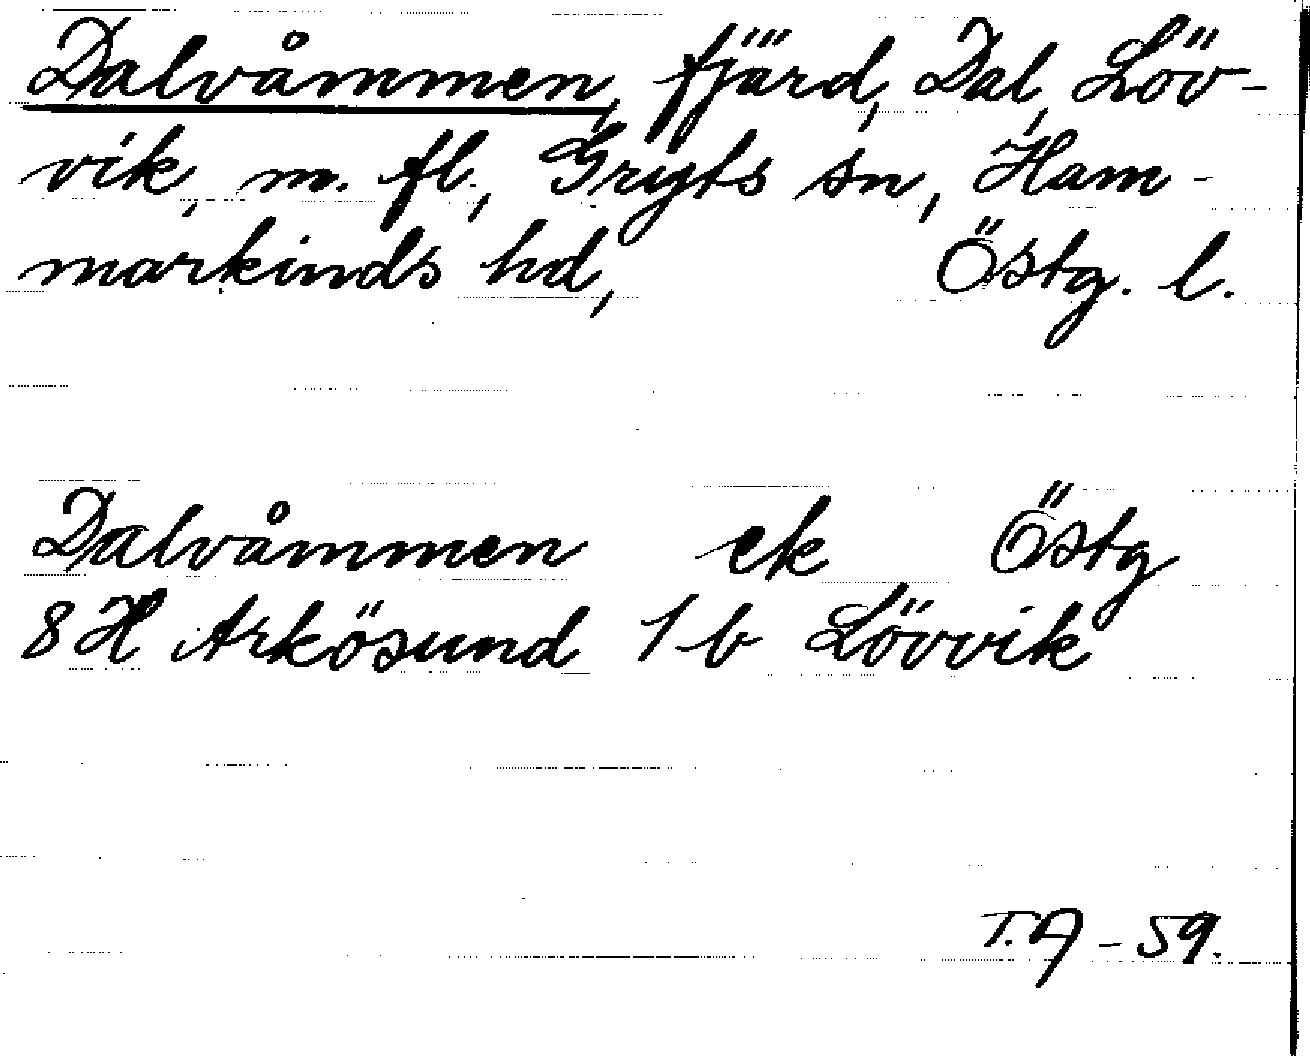 Dalvåmmen, fjärd, Dal, Löv-
vik, m. fl., Gryts sn, Ham-
markinds hd, Östg. l.
Dalvåmmen ek Östg
8 H Arkösund 1 b Lövvik
T.A - 59.